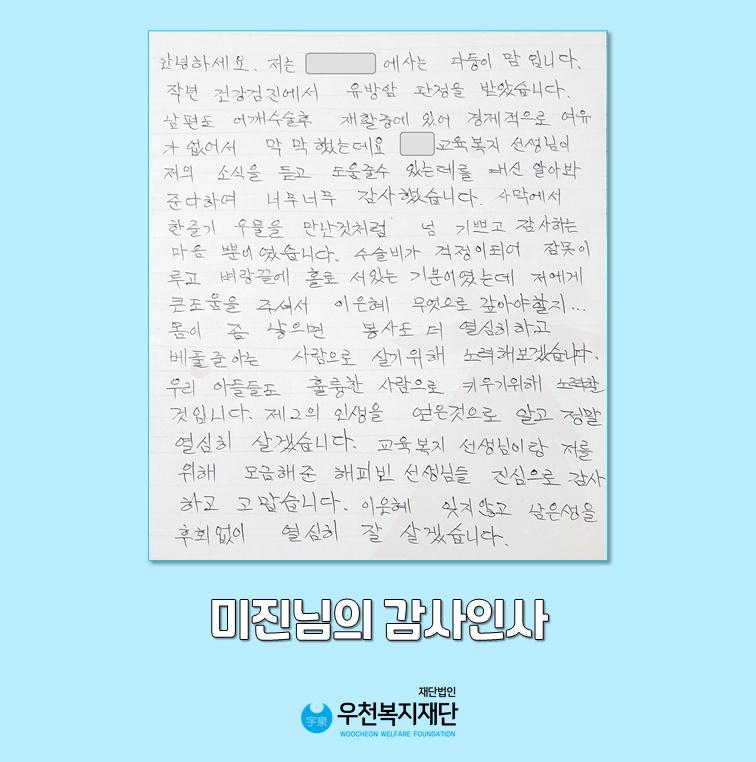 안녕하세요. 저는 에사는 다둥이 맘 입니다.
작년 건강검진에서 유방암 판정을 받았습니다.
남편도 어깨수술후 재활중에 있어 경제적으로 여유
가 없어서 막막했는데요 교육복지 선생님이
저의 소식을 듣고 도움줄수 있는데를 대신 알아봐
준다하여 너무너무 감사했습니다. 사막에서
한줄기 우물을 만난것처럼 넘 기쁘고 감사하는
마음 뿐이였습니다. 수술비가 걱정이되어 잠못이
루고 벼랑끝에 홀로 서있는 기분이였는데 저에게
큰도움을 주셔서 이은혜 무엇으로 갚아야할지...
몸이 좀 낳으면 봉사도 더 열심히하고
베풀줄아는 사람으로 살기위해 노력해보겠습니다.
우리 아들들도 훌륭한 사람으로 키우기위해 노력할
것입니다. 제2의 인생을 얻은것으로 알고 정말
열심히 살겠습니다. 교육복지 선생님이랑 저를
위해 모금해준 해피빈 선생님들 진심으로 감사
하고 고맙습니다. 이은혜 잊지않고 남은생을
후회없이 열심히 잘 살겠습니다.
미진님의 감사인사
재단법인
宇泉 우천복지재단
WOOCHEON WELFARE FOUNDATION